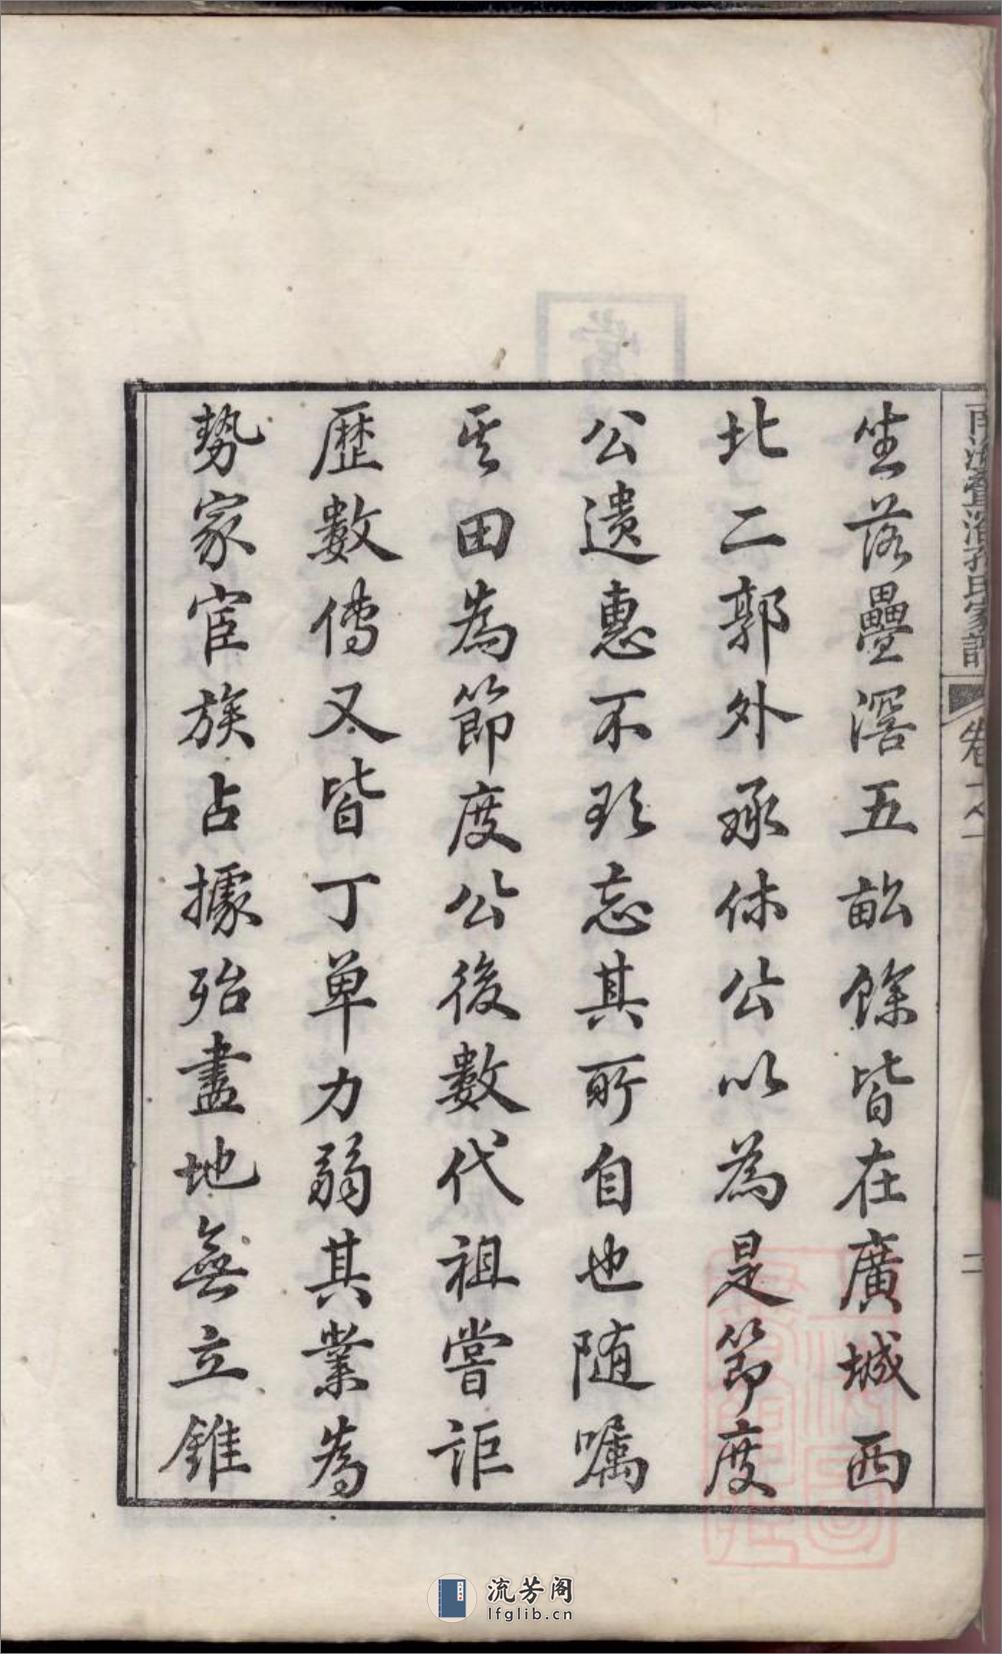 坐落疊滘五畝餘皆在廣城西
北二郭外承休公以為是節度
公遺惠不敢忘其所自也随嘱
其田為節度公後數代祖嘗詎
歷數傳又皆丁單力弱其業為
勢家宦族占據殆盡地無立錐
南海疊滘孔氏家譜
卷之一
二
流芳阁
lfglib.cn